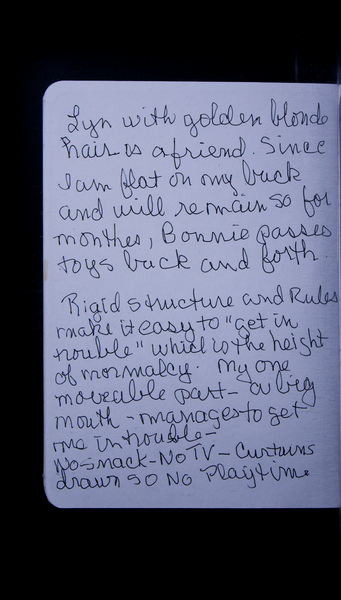 Lyn with golden blonde
hair is a friend. Since
I am flat on my back
and will remain so for
monthes, Bonnie passes
toys back and forth.
Rigid structure and Rules
make it easy to "get in
trouble" which is the height
of normalcy. My one
moveable part - a big
mouth - manages to get
me in trouble -
No-snack - No TV - Curtains
drawn so No Playtime